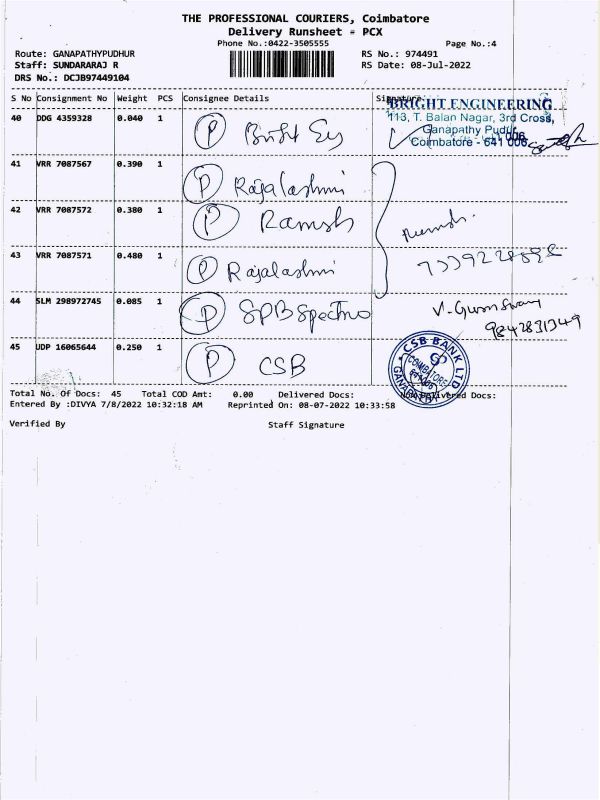 THE PROFESSIONAL COURIERS, Coimbatore
Delivery Runsheet = PCX
Phone No.:0422-3505555
Page No.:4
Route: GANAPATHYPUDHUR
RS No.: 974491
Staff: SUNDARARAJ R
RS Date: 08-Jul-2022
DRS No.: DCJB97449104
S No Consignment No Weight PCS Consignee Details
BRIGHT ENGINEERING
113, T. Balan Nagar, 3rd Cross,
Ganapathy Pudur,
Coimbatore - 641 006
40 DDG 4359328 0.040 1 P
41 VRR 7087567 0.390 1 P Rajalashmi
42 VRR 7087572 0.380 1 P Ramesh
43 VRR 7087571 0.480 1 P Rajalashmi
44 SLM 298972745 0.085 1 P SPB Spectro
9842831349
45 UDP 16065644 0.250 1 P CSB
CSB BANK LTD
COIMBATORE
GANAPATHY
Total No. Of Docs: 45 Total COD Amt: 0.00 Delivered Docs: Non Delivered Docs:
Entered By :DIVYA 7/8/2022 10:32:18 AM Reprinted On: 08-07-2022 10:33:58
Verified By Staff Signature